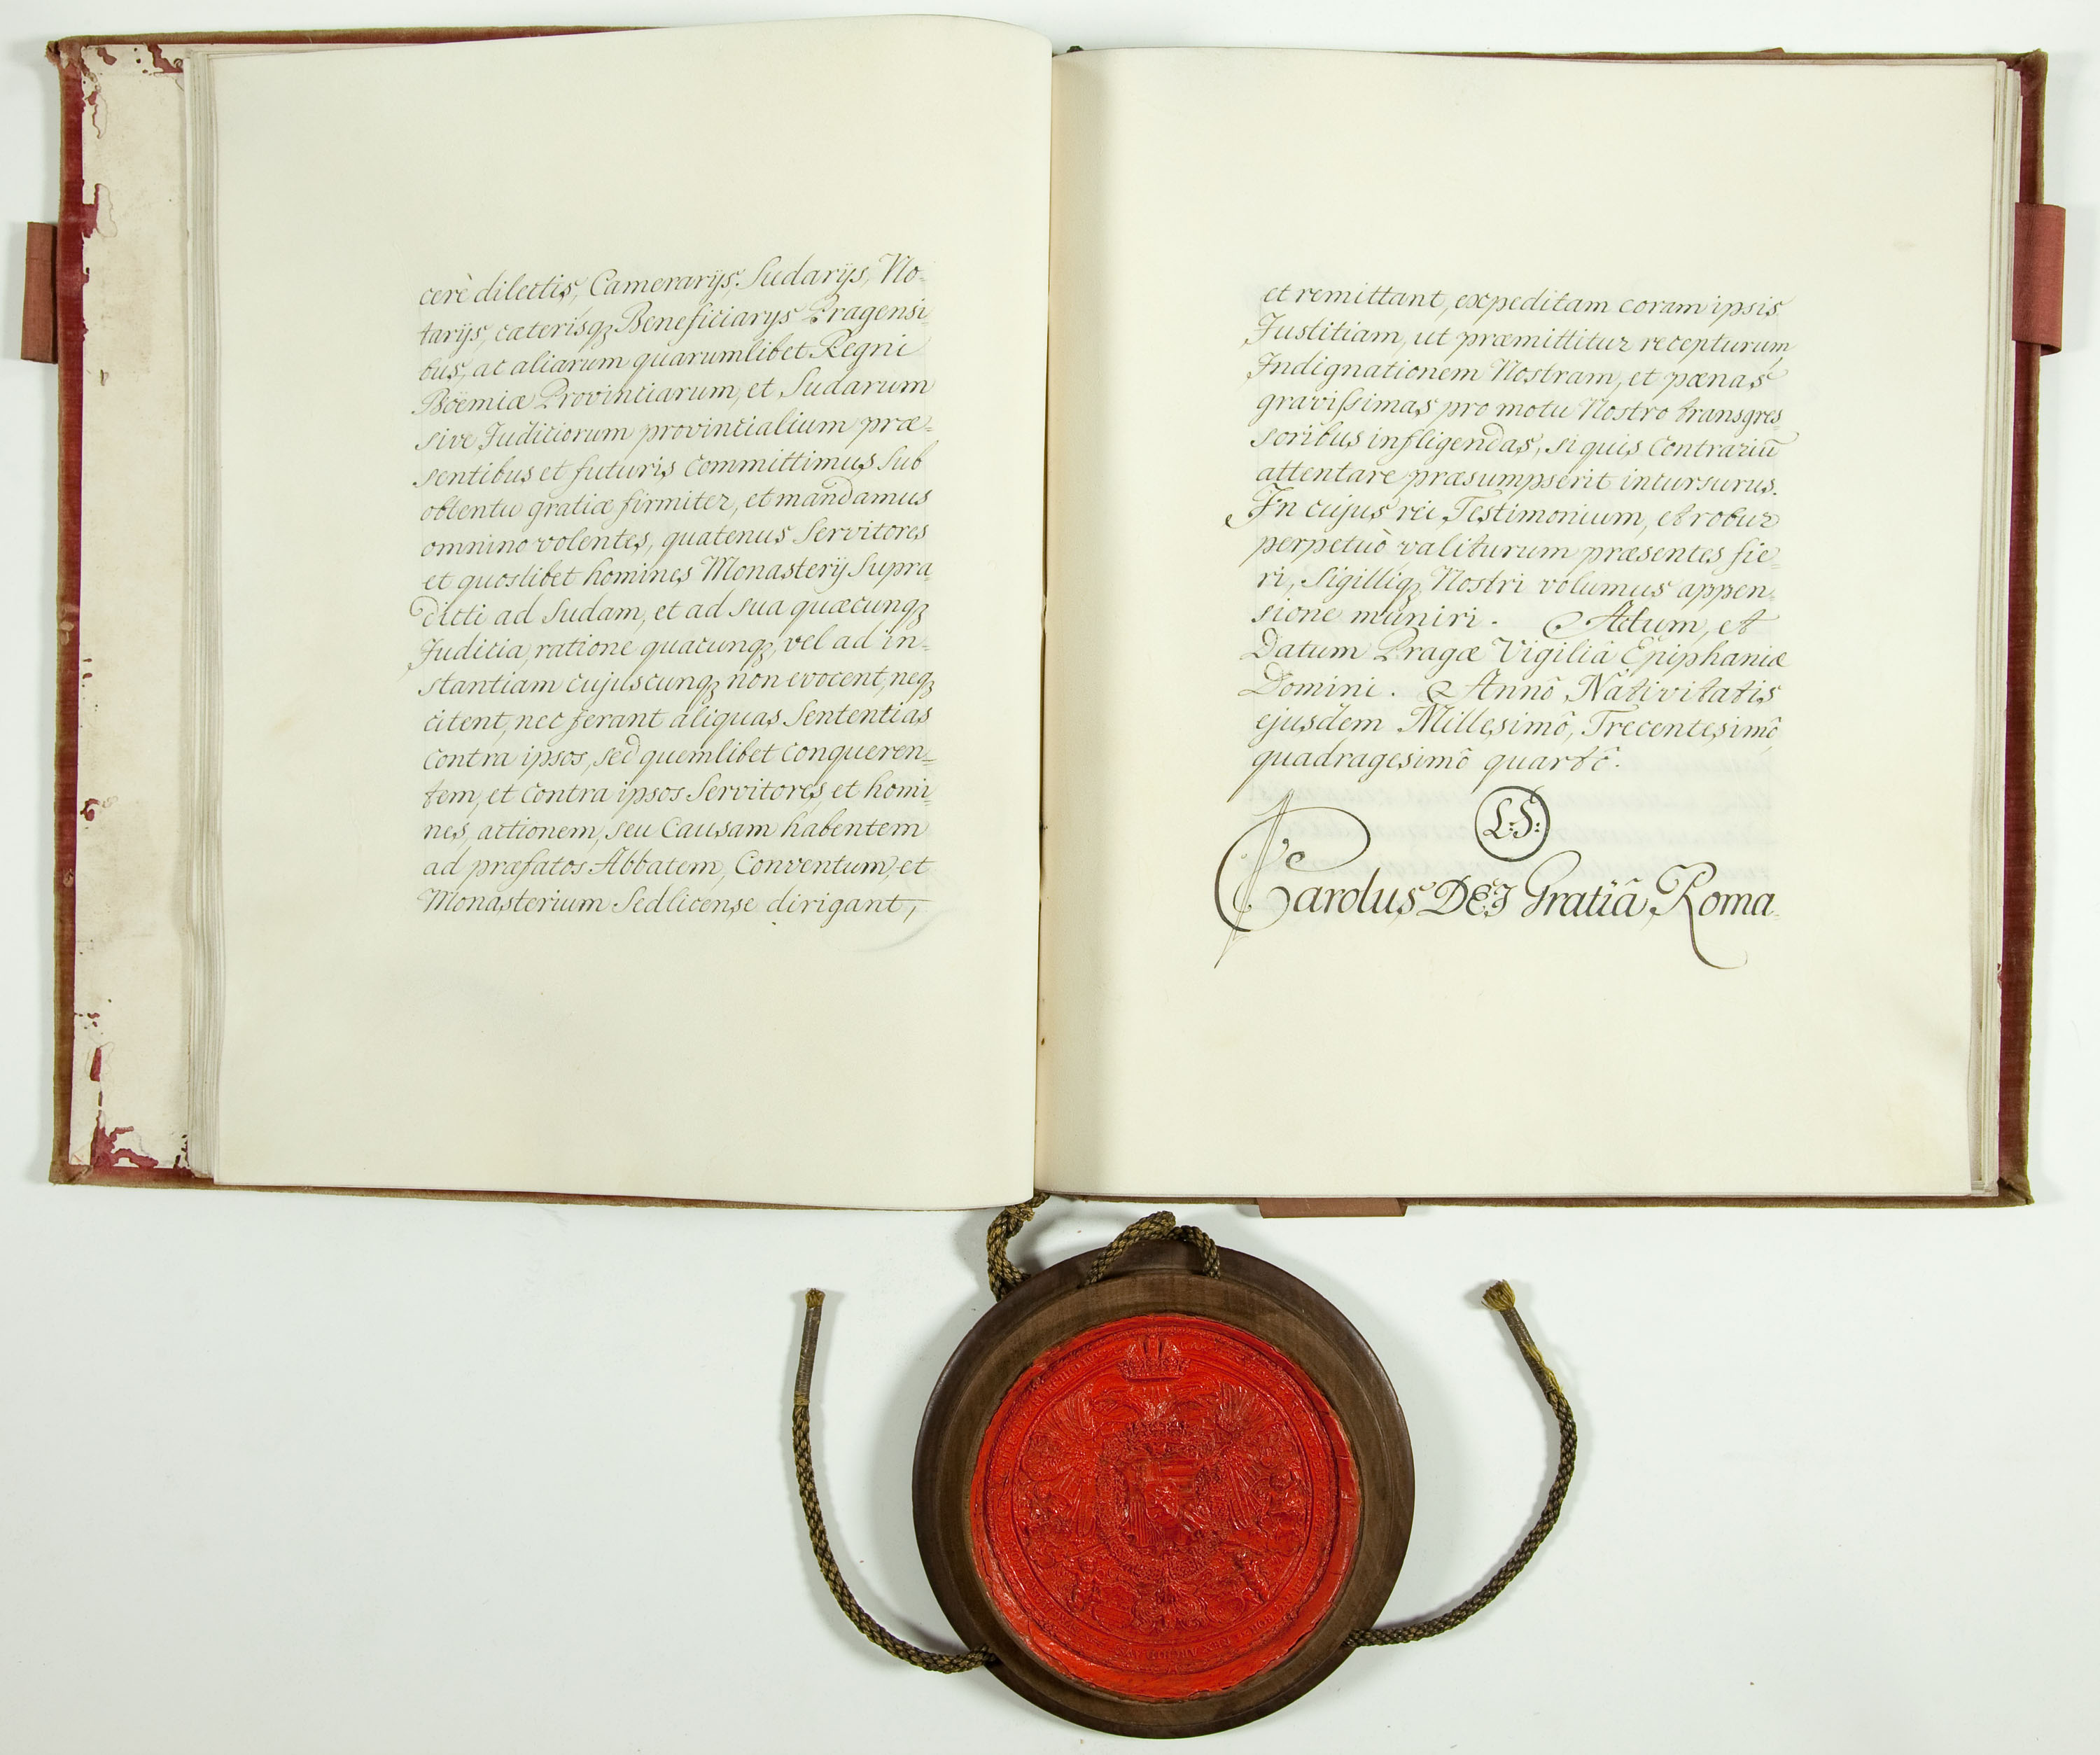 cerè dilectis, Camerarijs, Sudarijs, No-
tarijs, cæterisqꝫ Beneficiarijs Pragensi-
bus, ac aliarum quarumlibet Regni
Boëmiæ Provinciarum, et Sudarum
sive Judiciorum provincialium præ-
sentibus et futuris committimus sub
obtentu gratiæ firmiter, et mandamus
omnino volentes, quatenus Servitores
et quoslibet homines Monasterij supra-
dicti ad Sudam, et ad sua quæcunqꝫ
Judicia, ratione quacunqꝫ, vel ad in-
stantiam cujuscunqꝫ non evocent, neqꝫ
citent, nec ferant aliquas Sententias
contra ipsos, sed quemlibet conqueren-
tem, et contra ipsos Servitores, et homi-
nes, actionem, seu Causam habentem
ad præfatos Abbatem, Conventum, et
Monasterium Sedlicense dirigant,
et remittant, expeditam coram ipsis
Justitiam, ut præmittitur recepturum,
Indignationem Nostram, et pænas
gravissimas pro motu Nostro transgres-
soribus infligendas, si quis Contrariū
attentare præsumpserit incursurus.
In cujus rei Testimonium, et robur
perpetuò valiturum præsentes fie-
ri, Sigilliqꝫ Nostri volumus appen-
sione muniri. Actum, et
Datum Pragæ Vigiliâ Epiphaniæ
Domini. Annô Nativitatis
ejusdem Millesimô, Trecentesimô,
quadragesimô quartô.
L:S:
Carolus DEI Gratiâ, Roma-